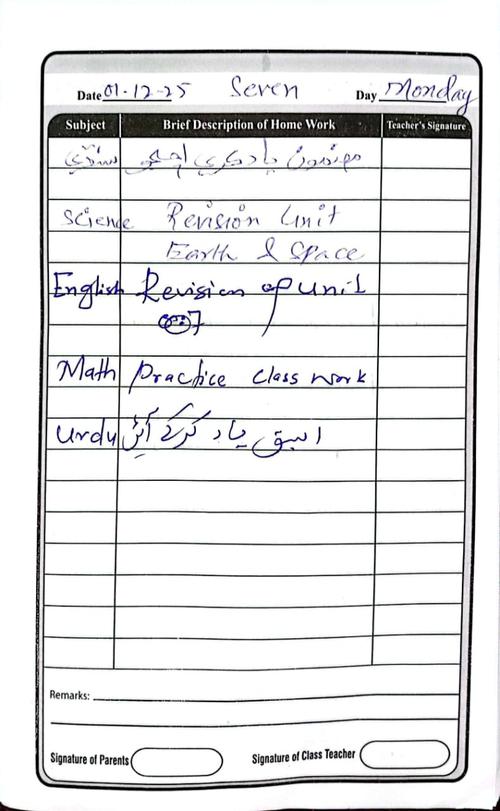 Date 01-12-25 Seven Day Monday
Subject Brief Description of Home Work Teacher's Signature
سنڌي مضمون ياد ڪري اچو
Science Revision Unit
Earth & Space
English Revision of unit
7
Math Practice Class work
Urdu سبق یاد کرکے آئیں
Remarks:
Signature of Parents Signature of Class Teacher